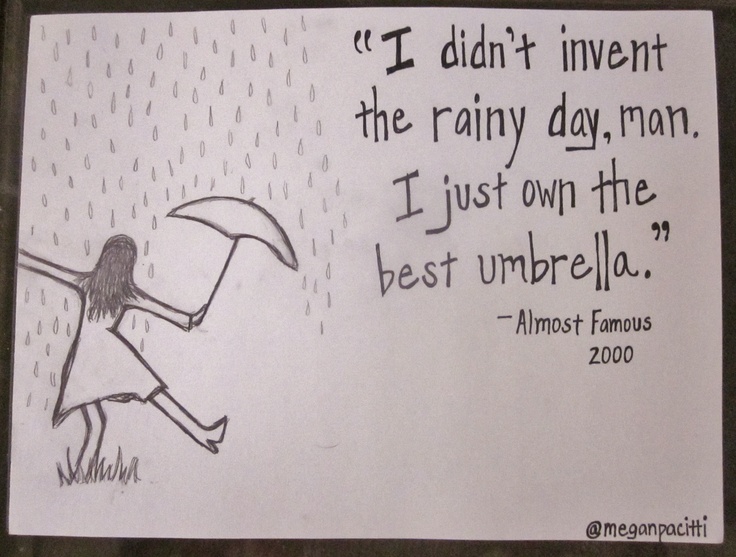 “I didn't invent
the rainy day, man.
I just own the
best umbrella.”
-Almost Famous
2000
@meganpacitti